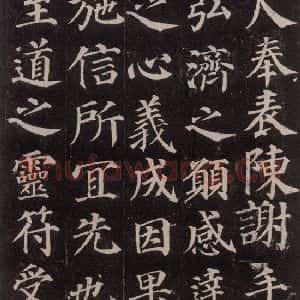 人奉表陳謝手
弘濟之願感達
之心義成因果
施信所宜先也
至道之靈符受